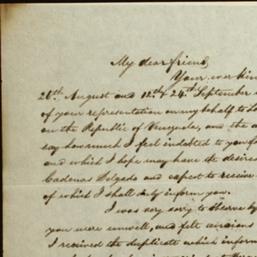 My dear friend,
Your
26th August and 12th & 24th September
of your representation on my behalf to
on the Republic of Venezuela, and the
say how much I feel indebted to you
and which I hope may have the desired
Cadenas Delgado and expect to receive
of which I shall duly inform you.
I was very sorry to observe by
you were unwell, and felt anxious
I received the duplicate which